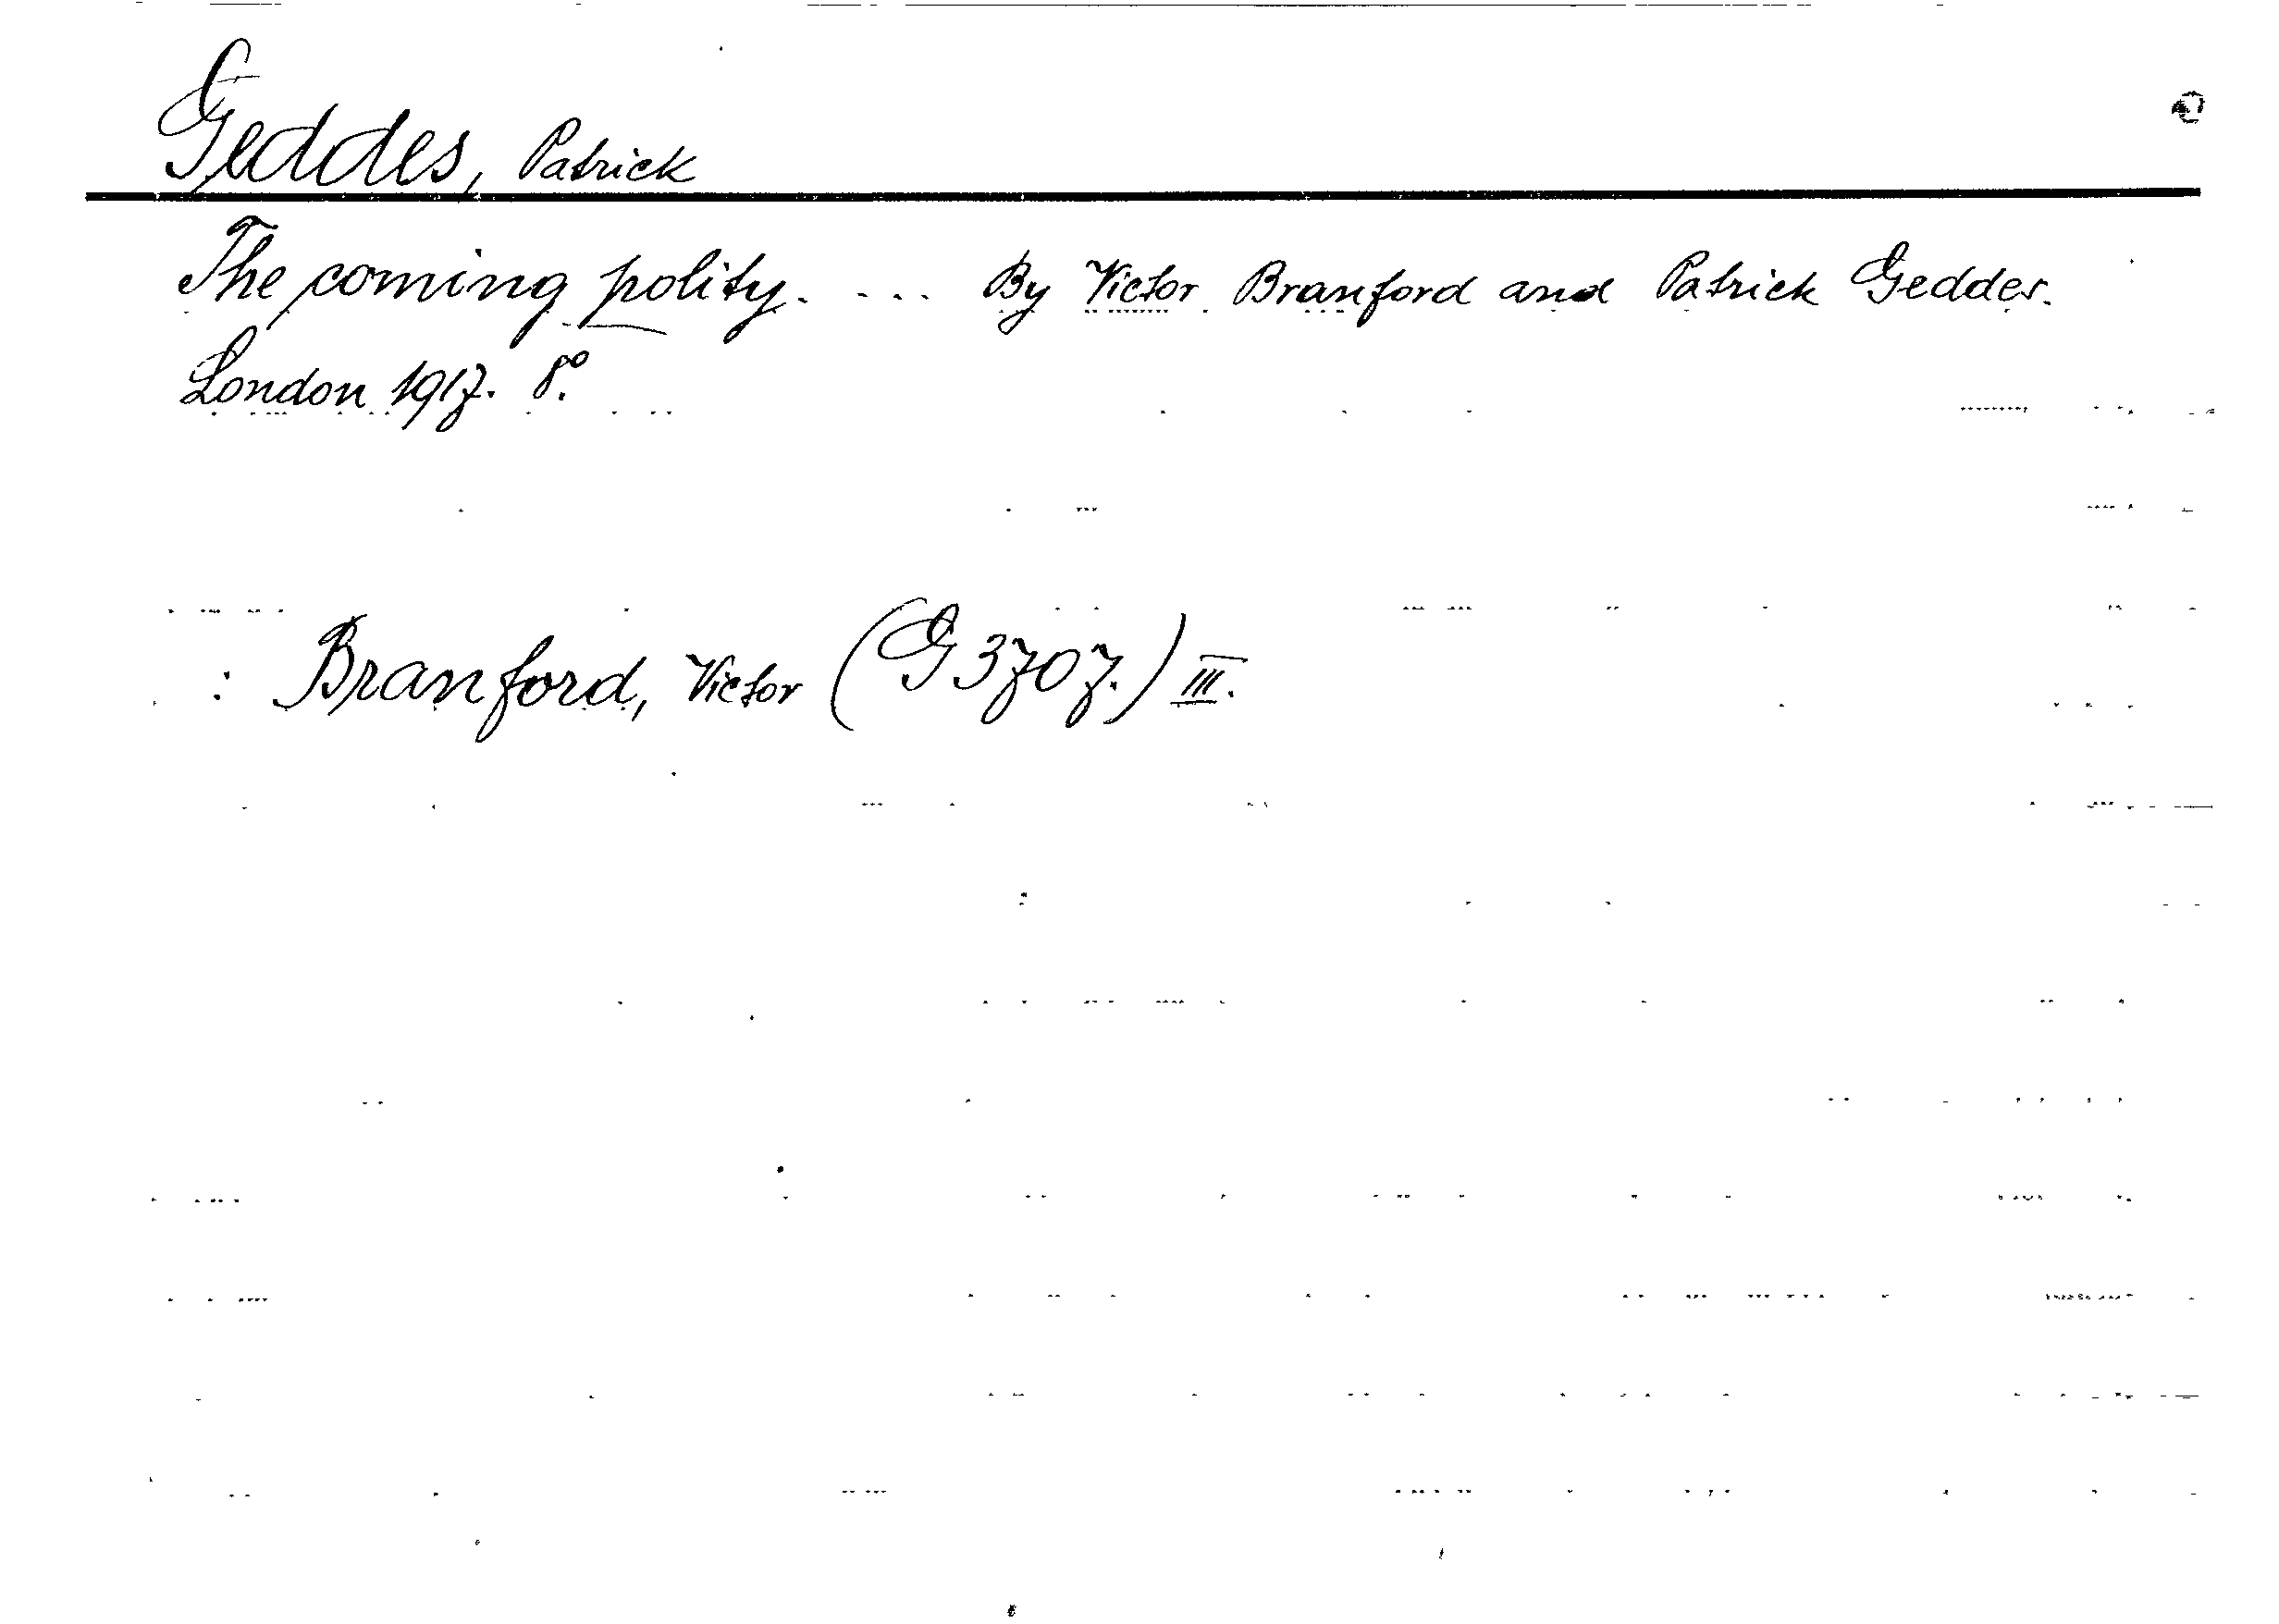 Geddes, Patrick
The coming polity. ... By Victor Branford and Patrick Geddes.
London 1917. 8°.
: Branford, Victor (G 3707.) III.